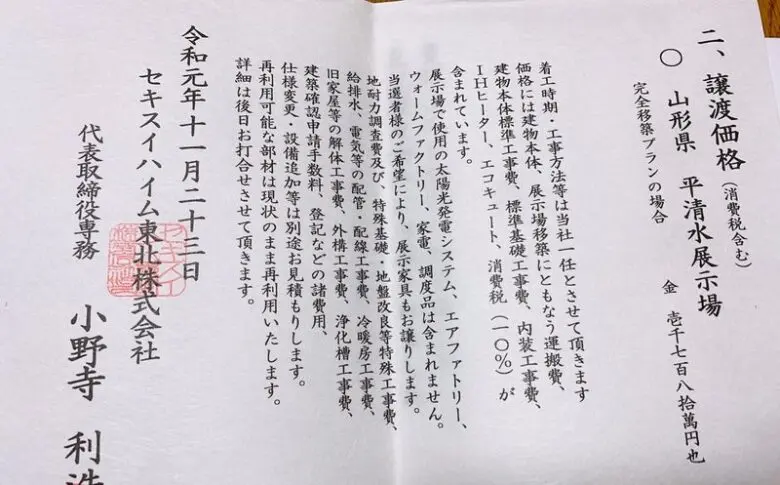 二、譲渡価格(消費税含む)
〇 山形県 平清水展示場
完全移築プランの場合 金 壱千七百八拾萬円也
着工時期・工事方法等は当社一任とさせて頂きます
価格には建物本体、展示場移築にともなう運搬費、
建物本体標準工事費、標準基礎工事費、内装工事費、
IHヒーター、エコキュート、消費税(一〇%)が
含まれています。
展示場で使用の太陽光発電システム、エアファクトリー、
ウォームファクトリー、家電、調度品は含まれません。
当選者様のご希望により、展示家具もお譲りします。
地耐力調査費及び、特殊基礎・地盤改良等特殊工事費、
給排水、電気等の配管・配線工事費、冷暖房工事費、
旧家屋等の解体工事費、外構工事費、浄化槽工事費、
建築確認申請手数料、登記などの諸費用、
仕様変更・設備追加等は別途お見積もりします。
再利用可能な部材は現状のまま再利用いたします。
詳細は後日お打合せさせて頂きます。
令和元年十一月二十三日
セキスイハイム東北株式会社
代表取締役専務 小野寺 利浩